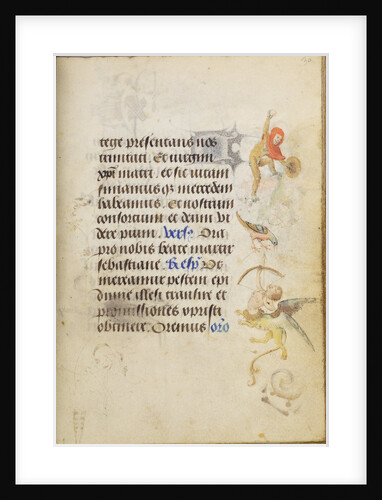 tege presentans nos
trinitati. Et virgini
xpi matri. et sic vitam
finiamus qz mercedem
habeamus. Et nostrum
consortium et deum vi
dere pium. Vers. Ora
pro nobis beate martir
sebastiane. Resp. Ot
mereamur pestem epi
dimie illesi transire et
promissiones xpristi
obtinere. Oremus oro